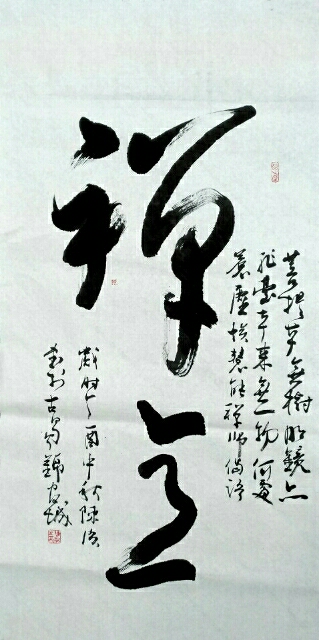 禪意
菩提本無樹明鏡亦
非臺本來無一物何處
惹塵埃慧能禪師偈語
歲时酉中秋陳
書於古蜀錦官城